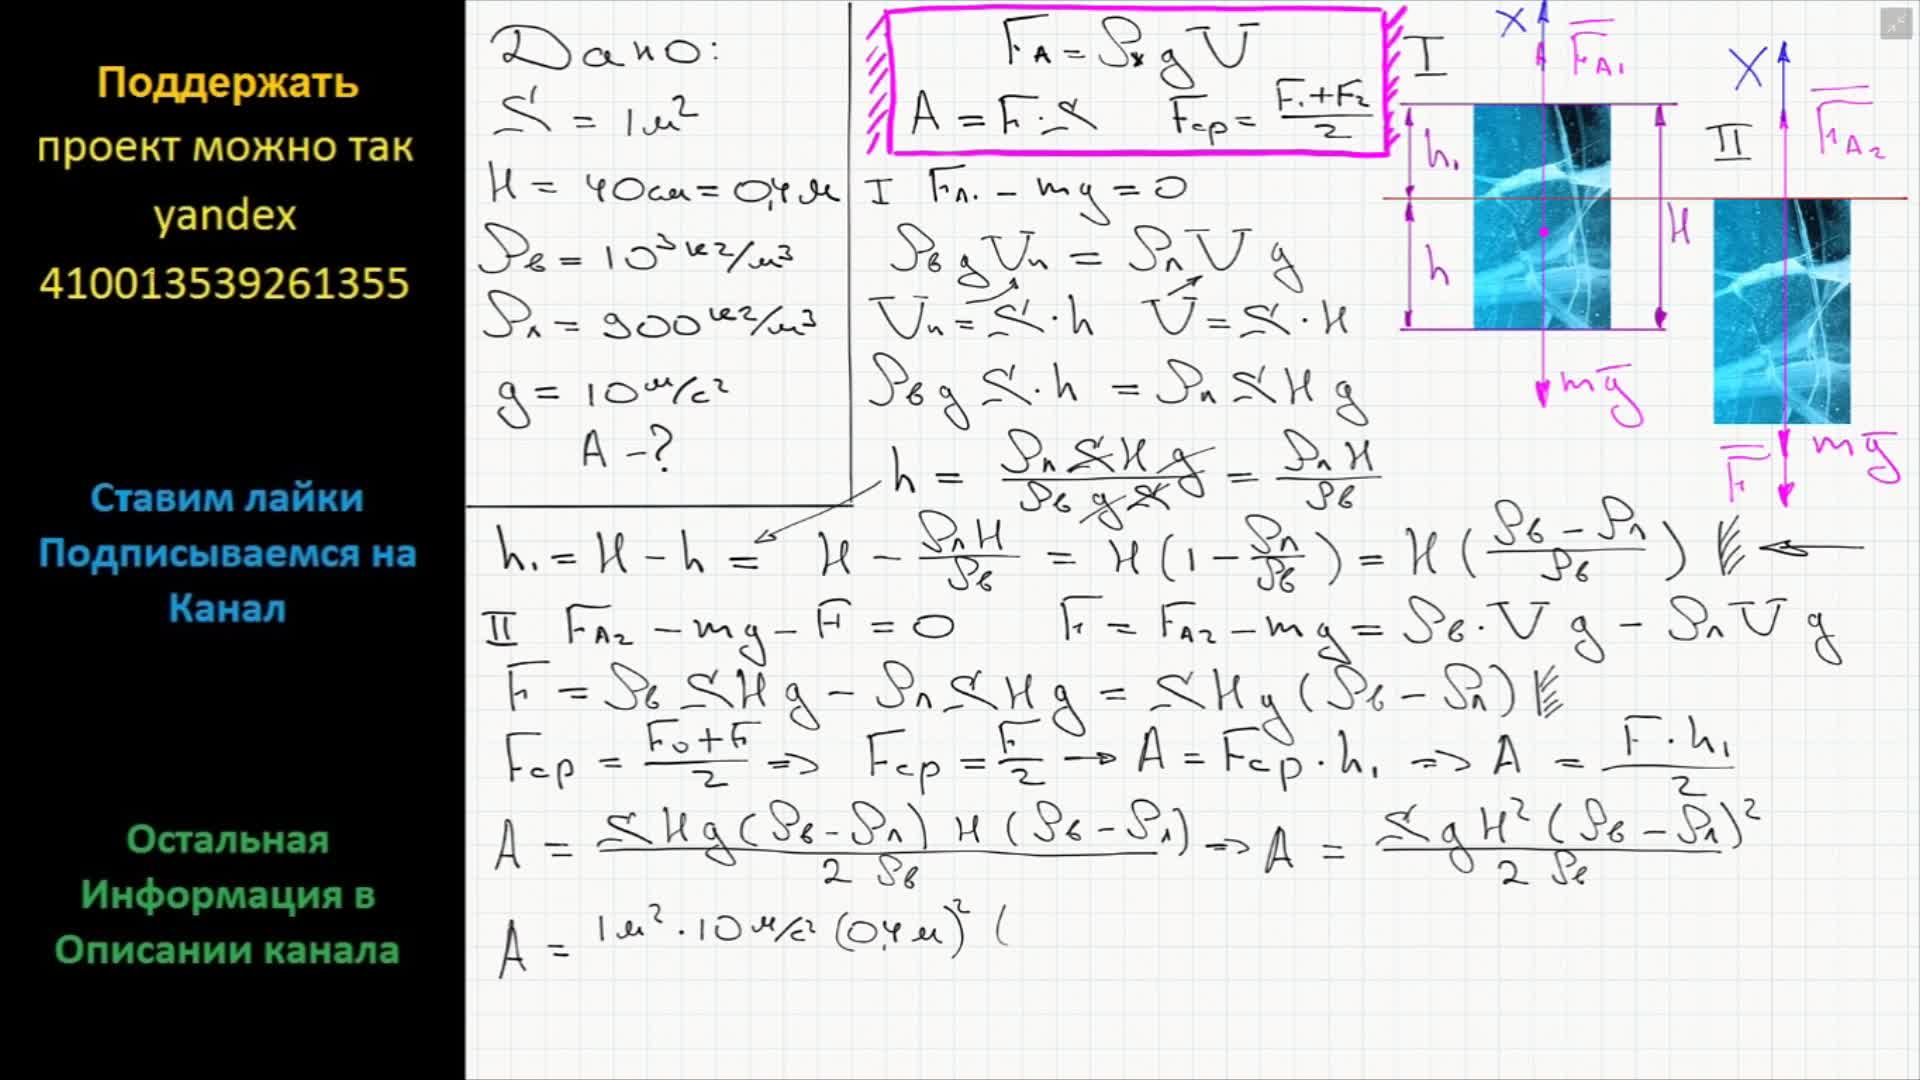 Поддержать
проект можно так
yandex
410013539261355
Ставим лайки
Подписываемся на
Канал
Остальная
Информация в
Описании канала
Дано:
S = 1 м²
H = 40 см = 0,4 м
ρв = 10³ кг/м³
ρл = 900 кг/м³
g = 10 м/с²
A - ?
FA = ρж g V
A = F · S Fср = (F₁ + F₂)/2
I Fл. - mg = 0
ρв g Vп = ρл V g
Vп = S · h V = S · H
ρв g S · h = ρл S H g
h = (ρл S H g)/(ρв g S) = (ρл H)/ρв
h₁ = H - h = H - (ρл H)/ρв = H (1 - ρл/ρв) = H ((ρв - ρл)/ρв)
II FA₂ - mg - F = 0 F = FA₂ - mg = ρв · V g - ρл V g
F = ρв S H g - ρл S H g = S H g (ρв - ρл)
Fср = (F₀ + F)/2 => Fср = F/2 → A = Fср · h₁ => A = (F · h₁)/2
A = (S H g (ρв - ρл) H (ρв - ρл))/(2 ρв) => A = (S g H² (ρв - ρл)²)/(2 ρв)
A = 1 м² · 10 м/с² (0,4 м)² (
I
X
FA₁
h₁
h
H
mg
II
X
FA₂
F
mg